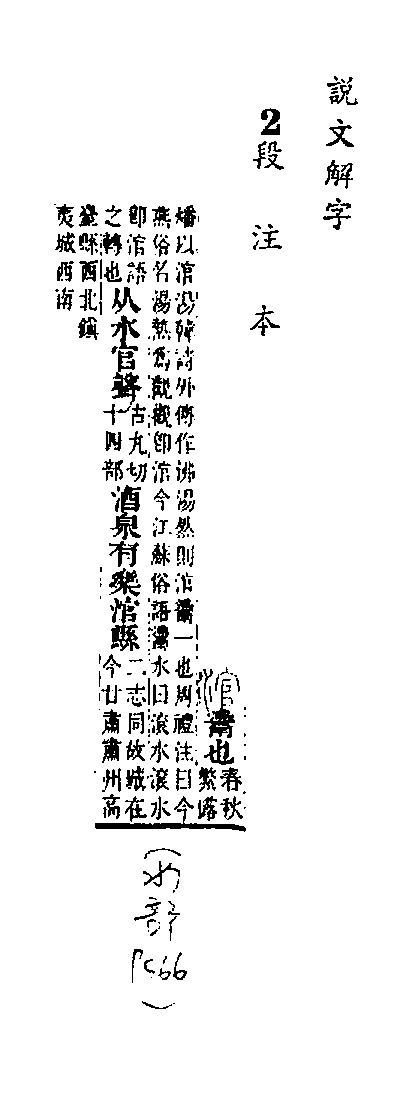 説文解字
2段注本
涫 䰞也 春秋
繁露
燔以涫湯韓詩外傳作沸湯然則涫䰞一也周禮注曰今
燕俗名湯熱爲觀觀卽涫今江蘇俗語䰞水曰滾水滾水
卽涫語
之轉也
从水官聲
古丸切
十四部
酒泉有樂涫縣
二志同故城在
今甘肅肅州高
臺縣西北鎮
夷城西南
(水部 P566)